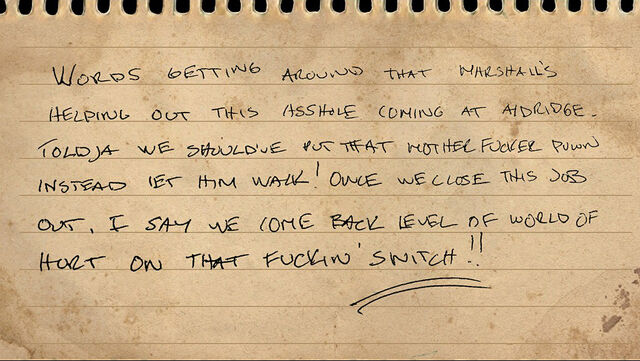 WORDS GETTING AROUND THAT MARSHALL'S
HELPING OUT THIS ASSHOLE COMING AT ALDRIDGE.
TOLDJA WE SHOULD'VE PUT THAT MOTHER FUCKER DOWN
INSTEAD LET HIM WALK! ONCE WE CLOSE THIS JOB
OUT, I SAY WE COME BACK LEVEL OF WORLD OF
HURT ON THAT FUCKIN' SNITCH!!